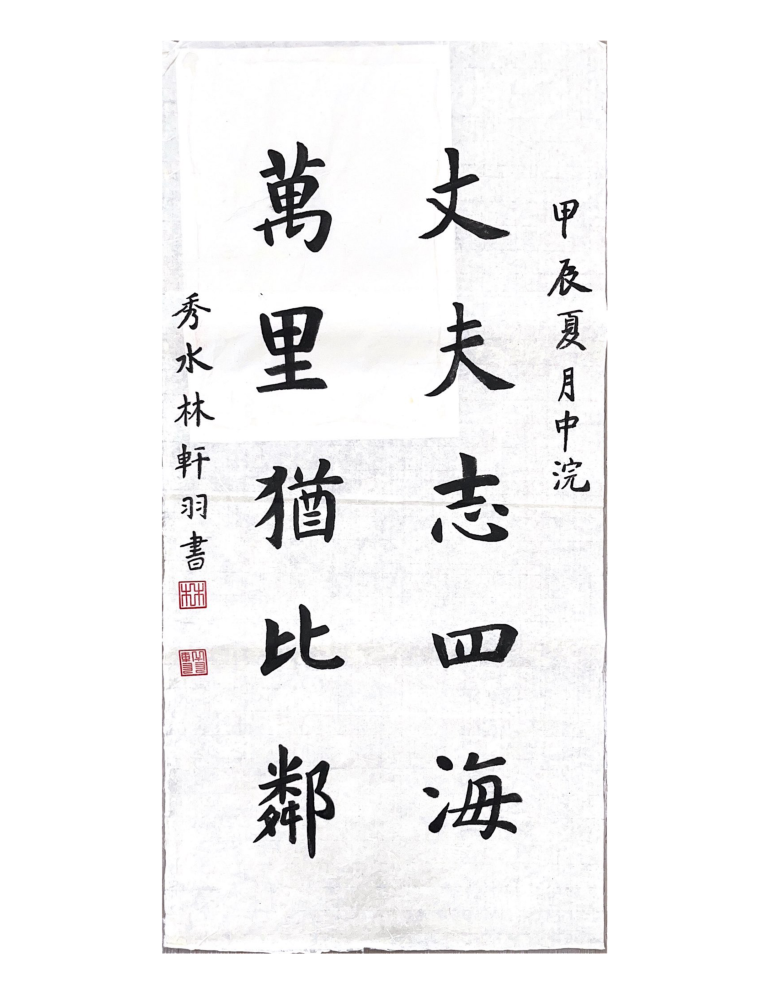 甲辰夏月中浣
丈夫志四海
萬里猶比鄰
秀水林軒羽書
林